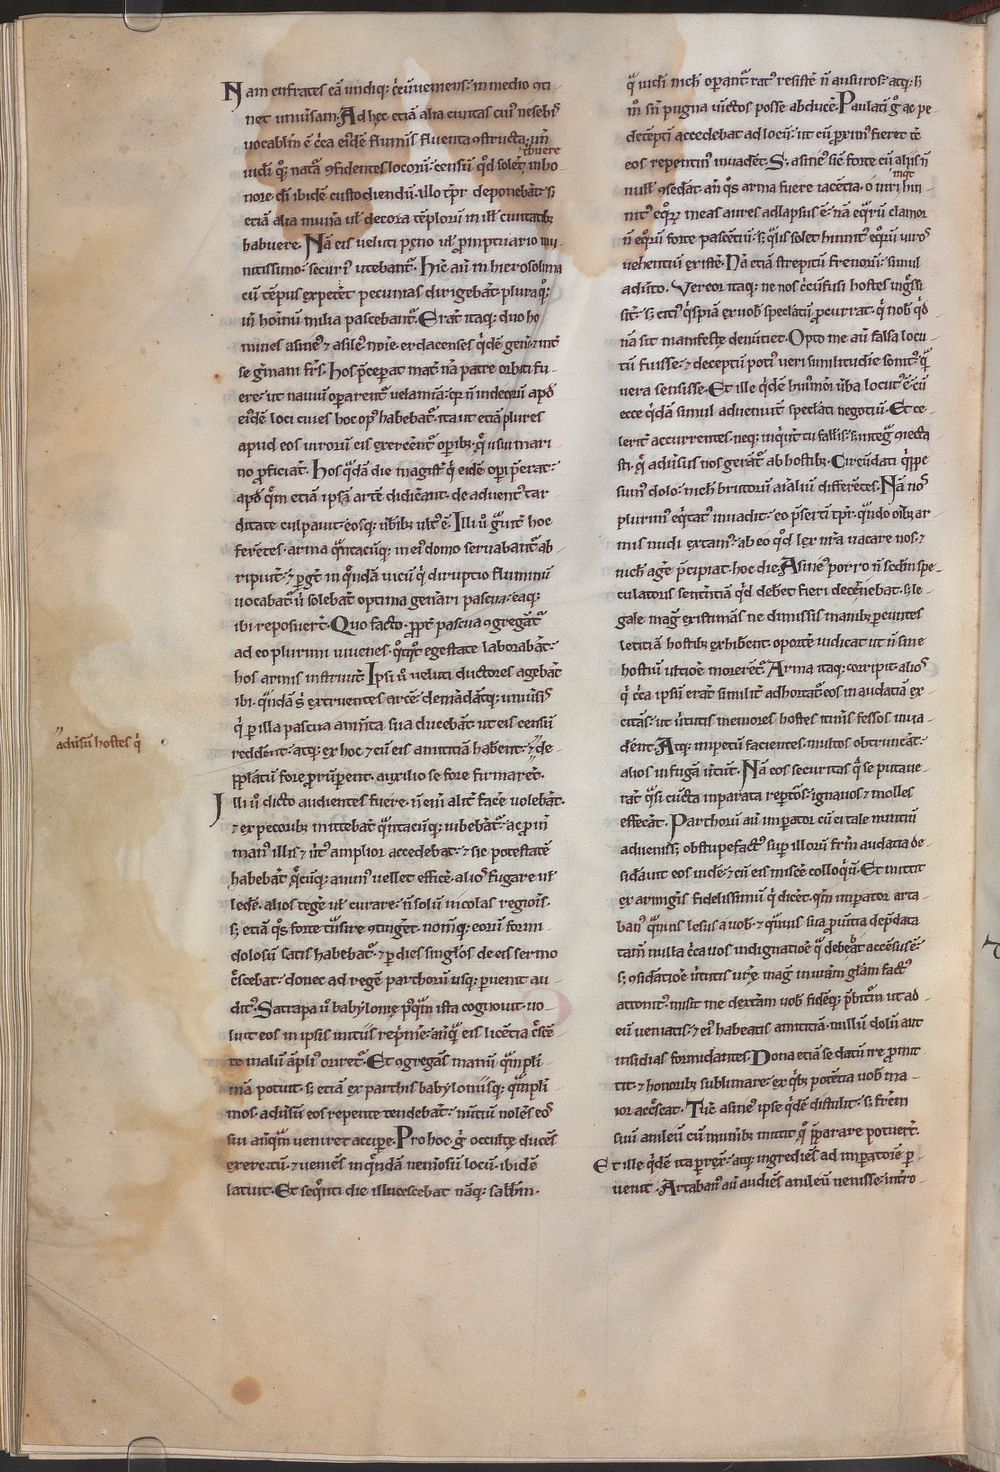 Nam eufrates eā undiq; c̓cūueniens· in medio ɔti
net uniūsam· Ad hęc etiā alia ciuitas cui᷒ nesebi᷒
uocablm̄ ē c̓ca eidē fluminis fluenta ɔstructa· un̄
iudęi q; naturā ɔfidentes locorū· censum q̓d solet inho
tribuere
nore dī ibidē custodiendū· illo tp̄r deponebāt s;
etiā alia munera ul̓ decora tēplorū in ill̓ ciuitatib;
habuere· Nā eis ueluti pęno ul̓ prōptuario mu
nitissimo· securi᷒ utebant᷑· Hic aūt in hierosolima
cū tēpus expetēt pecunias dirigebāt· plura q;
in hoīnū milia pascebant᷑· Erāt itaq; duo ho
mines asine᷒ ⁊ asile᷒ noīe· erdacenses q̓dē gen̄e· int̓
se germani fr̄s· hos p̄ceperat mat̓ nā patre orbati fu
ere· ut nauiū opararent᷑ uelamina· q̓r n̄ indecorū apd̓
eidē loci ciues hoc op᷒ habebat᷑· itaut etiā plures
apud eos uirorū eis exercent᷑ operib; q̓ usui mari
no proficiāt· hos q̓dā die magist̓ q̓ eidē operi p̄erat·
apd̓ q̄m etiā ipsā artē didicerant· de aduent᷒ tar
ditate culpauit· eosq; uerberib; ult᷒ ē· Illi ū grauit̓ hoc
ferentes· arma q̄ntacūq; in ei᷒ domo seruabant᷑ ab
ripuert̓· ⁊ p̄gūt in q̄ndā uicū q̓ diruptio fluminū
uocabat᷑ ū solebat optima gen̄ari pascua· eaq;
ibi reposuert̓· Quo facto· ꝓpt̓ pascua ɔgregat᷑
ad eos plurimi iuuenes· quotq̓t egestate laborabāt·
hos armis instruūt· Ipsi ū ueluti ductores agebāt
ibi· q̄ndā s̓ extruentes arcē· demādātq; uniūsis
q̓ p illa pascua armēta sua ducebāt ut eis censū
reddent̓· atq; ex hoc ⁊ cū eis amicitiā haberent· ⁊ de
pp̄latū fore prorūperent· auxilio se fore firmarēt·
Illi ū dicto audientes fuere· n̄ enī alit̓ facere ualebāt·
⁊ ex pecorib; mittebāt q̄ntacūq; iubebant᷑· ac proin
man᷒ illis ⁊ ūt᷒ amplior accedebat· ⁊ sic potestatē
habebāt q̓cūq; anim᷒ uellet efficere· alios fugare ul̓
ledere· alios tegere ul̓ curare· n̄ solū incolas regiois·
s; etiā q̓s forte t̄nsire ɔtigisset· nomq; eorū formi
dolosum satis habebat᷑· ⁊ p dies singlos de eis sermo
c̓scebat· donec ad regē parthorū usq; peruenit au
dit᷒· Satrapa ū babylonię p᷒q̄m ista cognouit· uo
luit eos in ipsis initiis reprimere· antq̄ eis licentia c̓scē
te malū ampli᷒ oriret᷑· Et ɔgregās manū q̄mpli
mā potuit· s; etiā ex parthis babyloniisq; q̄mpli
mos· aduersū eos repente tendebat· nuntiū nolens eos
sui antq̄m ueniret accipe· Pro hoc ḡ occultę ducens
exercitū· ⁊ ueniens in q̄ndā nemosum locū· ibidē
latuit· Et seq̄nti die illucescebat naq; sabbm̄·
aduersū hostes q̓
q̄ iudęi nichil operant᷑ rat᷒ resistere n̄ ausuros· atq; h
in̄ sn̄ pugna uictos posse abducere· Paulati ḡ ac pe
detēpti accedebat ad locū· ut cū proxim᷒ fieret t̄c
eos repentin᷒ inuadēt· S; asine᷒ sic̄ forte cū aliis n̄
inq̓t
null̓ ɔsedat· an̄ q̓s arma fuere iacētia· o uiri hin
nit᷒ eq̓rū meas aures adlapsus ē· nā eq̓rū clamor
n̄ eq̓rū forte pascētiū· s; q̄lis solet hinnit᷒ eq̓rū uiros
uehentiū existere· Nā etiā strepitū frenorū· simul
aduerto· Vereor itaq; ne nos c̓cūfusi hostes ingressi
sint· s; citi᷒ q̓spiā ex uobis speclatū procurrat· q̓ nob̓ q̓d
nā sit manifeste denūtiet· Opto me aūt falsa locu
tū fuisse· ⁊ deceptū poti᷒ ueri similitudine sonit᷒· q̄
uera sensisse· Et ille q̓dē hui᷒modi ūba locut᷒ ē· cū
ecce q̓dā simul adueniūt speclati negotiū· Et ce
lerit̓ accurrentes· neq; inq̓iūt tu fallis᷒· s; integre ɔiecta
sti· q̓ aduersus nos gerant᷑ ab hostib;· Circūdati q̓ppe
sum᷒ dolo· nichil brutorū aīaliū differētes· Nā nos
plurim᷒ eq̓tat᷒ inuadit· eo p̄sertī tp̄r· q̄ndo omib; ar
mis nudi extam᷒· ab eo q̓d lex nr̄a uacare nos ⁊
nichil agere p̄cipiat· hoc die· Asine᷒ porro n̄ scdm̄ spe
culatoris sententiā q̓d deberet fieri decernebat· s; le
gale mag̓ existimās ne dimissis manib; p̄euntes
letitiā hostib; exhiberent· oportere iudicat ut n̄ sine
hostiū ultione morerent᷑· Arma itaq; corripit· alios
q̓ c̓ca ipsū erāt similit̓ adhortat᷑· eos in audatiā ex
citās· ut ūtutis memores hostes itineris fessos inua
derent· Atq; impetū facientes· multos obtruncāt·
alios in fugā ūtunt· Nā eos securitas q̓ se putaue
rāt q̄si cūcta imparata repturos· ignauos ⁊ molles
effecerat· Parthorū aūt imperator cū ei tale nuntiū
aduenisset· obstupefact᷒ super illorū fratrum audatia de
siderauit eos uidere· ⁊ cū eis miscere colloq̓ū· Et mittit
ex armigeris fidelissimū q̓ diceret· q̄m imperator arta
ban᷒ q̄uis lesus a uob̓· ⁊ q̄uis sua prouincia dep̄data
tam̄ nulla c̓ca uos indignatioē q̄ deberet accensus ē·
s; ɔsideratiōe ūtutis ur̄ę mag̓ in ur̄am gr̄am fact᷒
attonit᷒· misit me dexteram uobis fidēq; p̄biturū· ut ad
eū ueniatis· ⁊ ei᷒ habeatis amicitiā· nullū dolū aut
insidias formidantes· Dona etiā se daturū ire promit
tit· ⁊ honorib; sublimare· ex q̓b; potētia uobis ma
ior accrescat· Tūc asine᷒ ipse q̓dē distulit· s; fratrem
suū anileū cū munerib; mittit q̓ p̄parare potuert̓·
Et ille q̓dē ita prexit· atq; ingrediens ad imperatorē p
uenit· Artaban᷒ aūt audiens anileū uenisse· intro